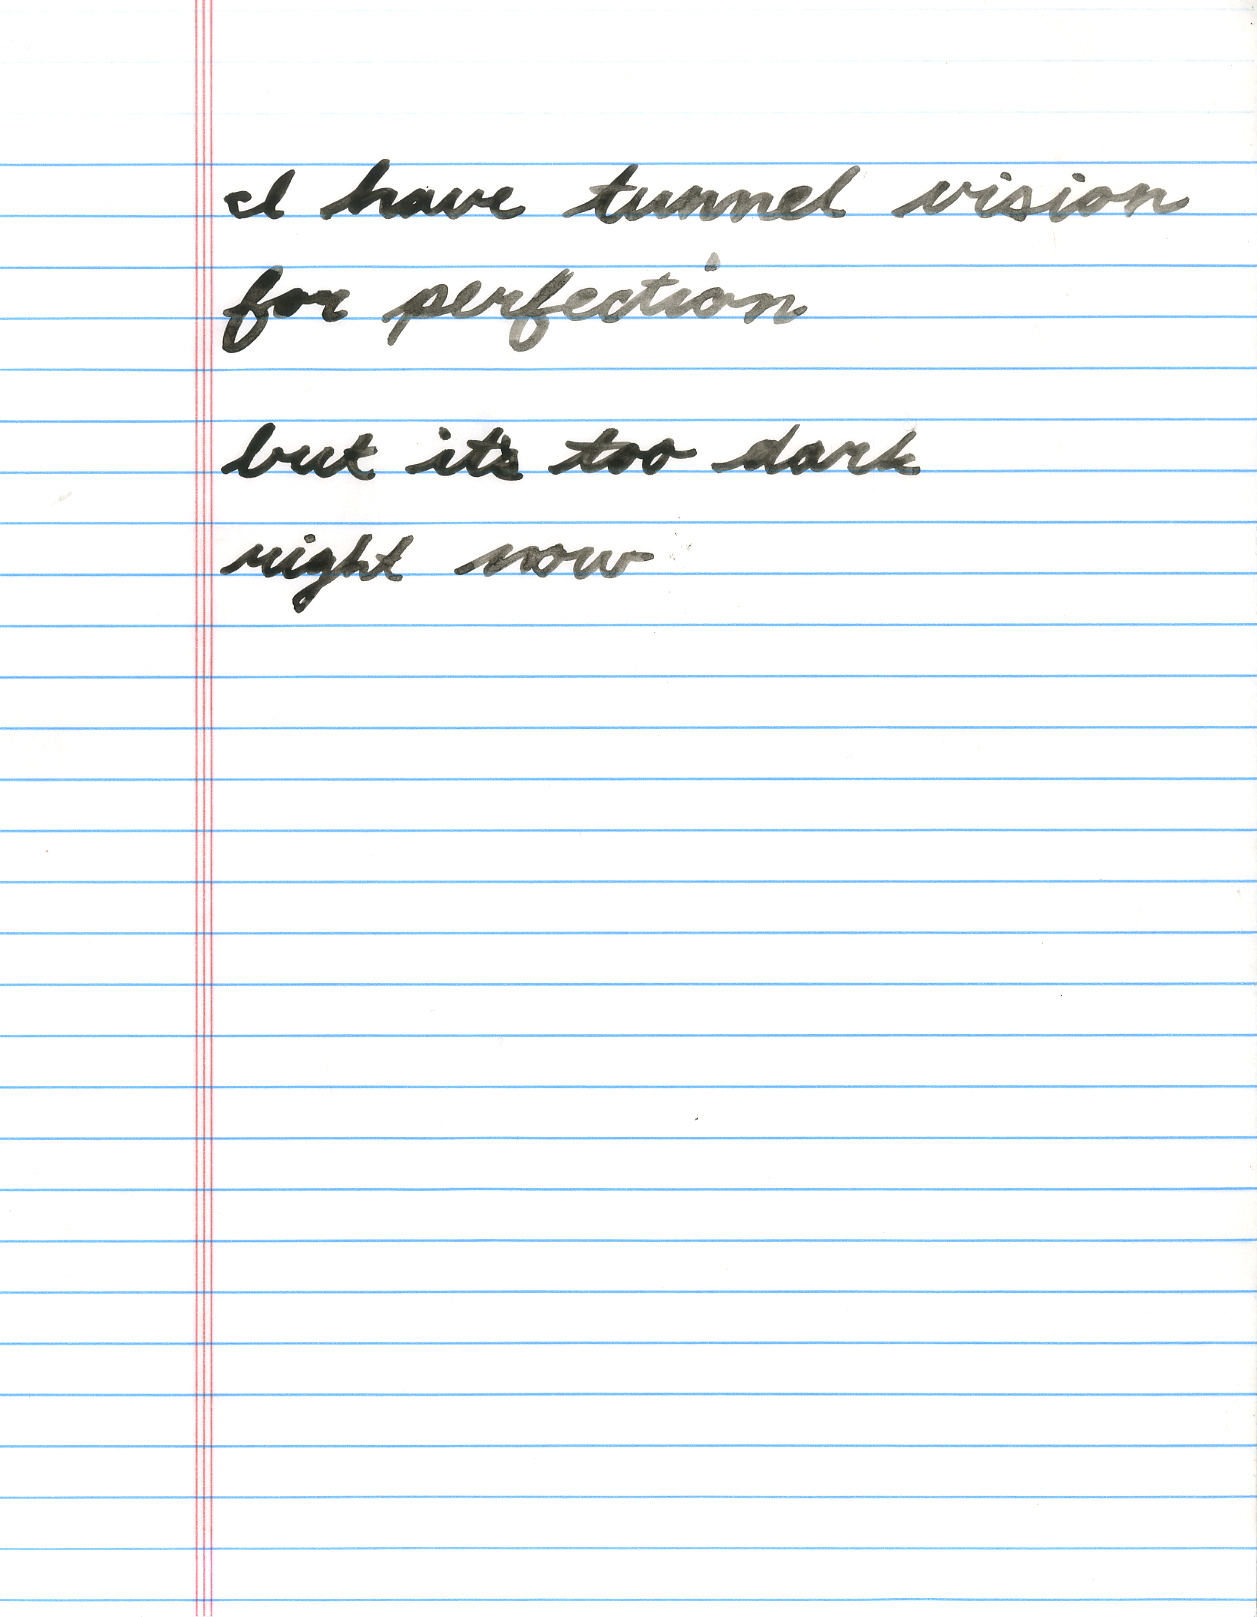 I have tunnel vision
for perfection
but it's too dark
right now